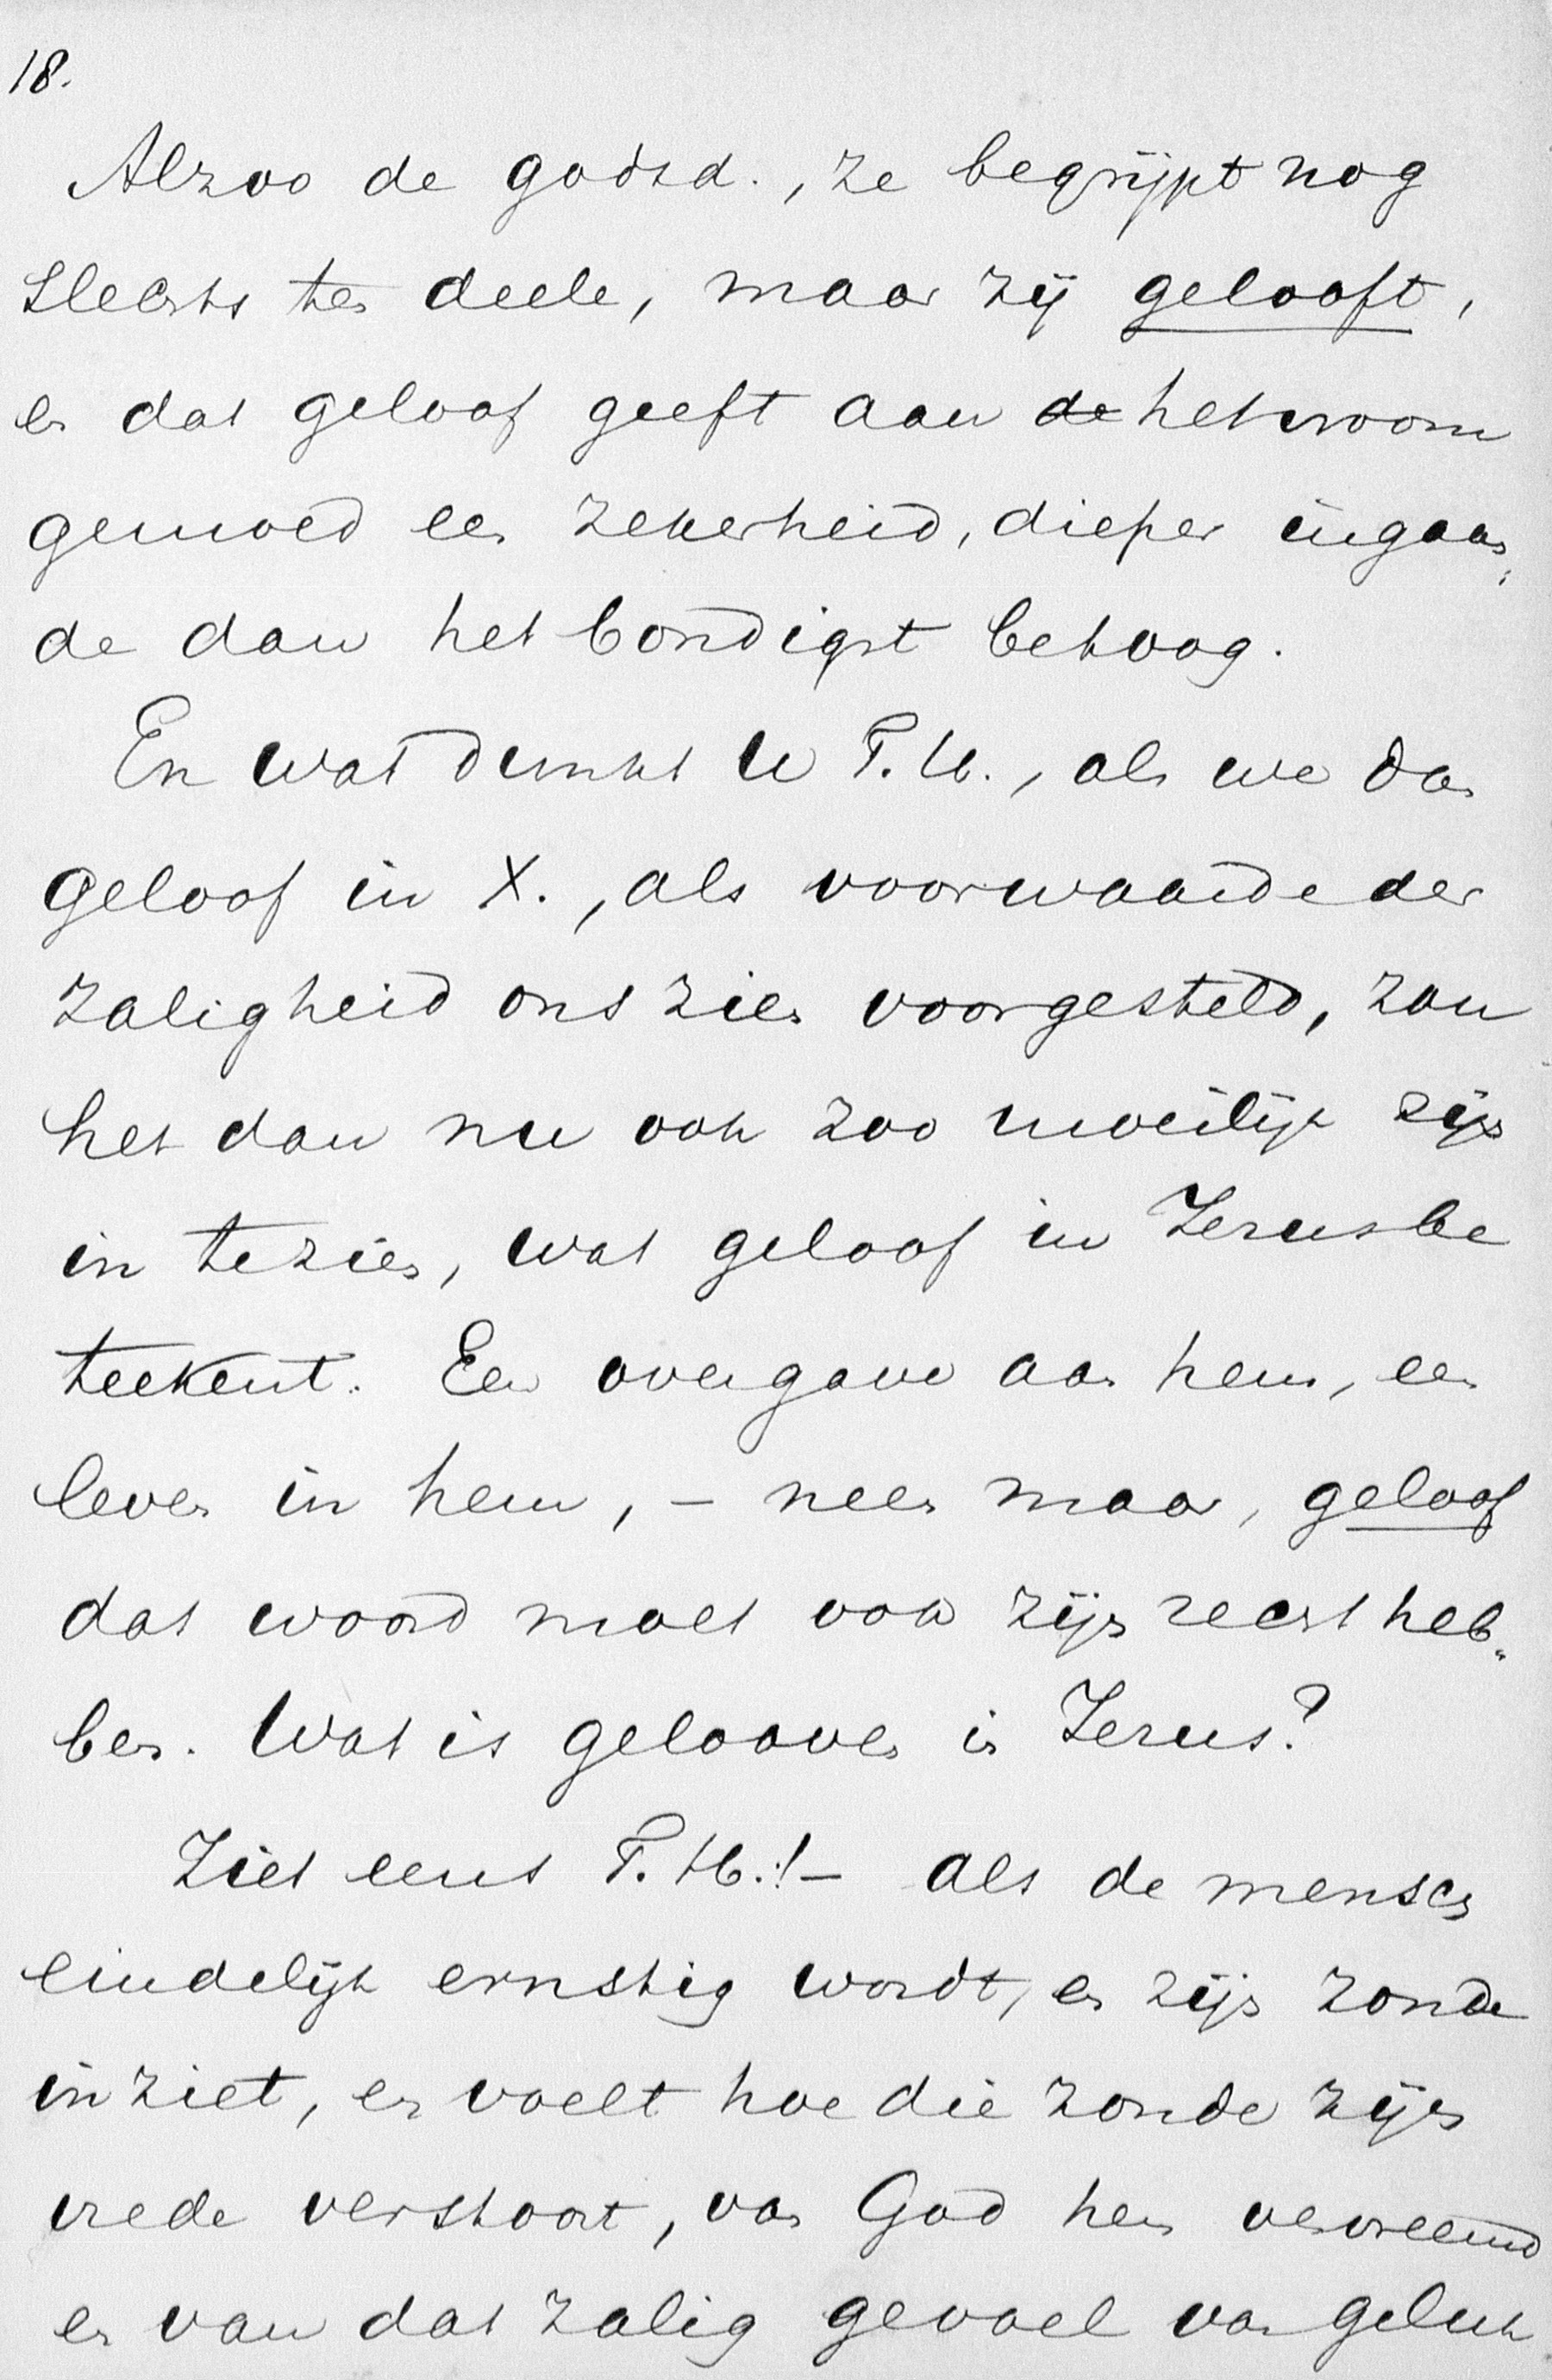 18.
Alzoo de godsd., ze begrijpt nog
slechts ten deele, maar zij gelooft,
en dat geloof geeft aan de het vroom
gemoed een zekerheid, dieper ingaan„
de dan het bondigst betoog.
En wat dunkt U T.H., als we dan
geloof in X., als voorwaarde der
zaligheid ons zien voorgesteld, zou
het dan nu ook zoo moeilijk zijn
in te zien, wat geloof in Jezus be
teekent. Een overgave aan hem, een
leven in hem, – neen maar, geloof
dat woord moet ook zijn recht heb„
ben. Wat is gelooven in Jezus?
Ziet eens T.H.! – als de mensch
eindelijk ernstig wordt, en zijn zonde
inziet, en voelt hoe die zonde zijn
vrede verstoort, van God hem vervreemd
en van dat zalig gevoel van geluk